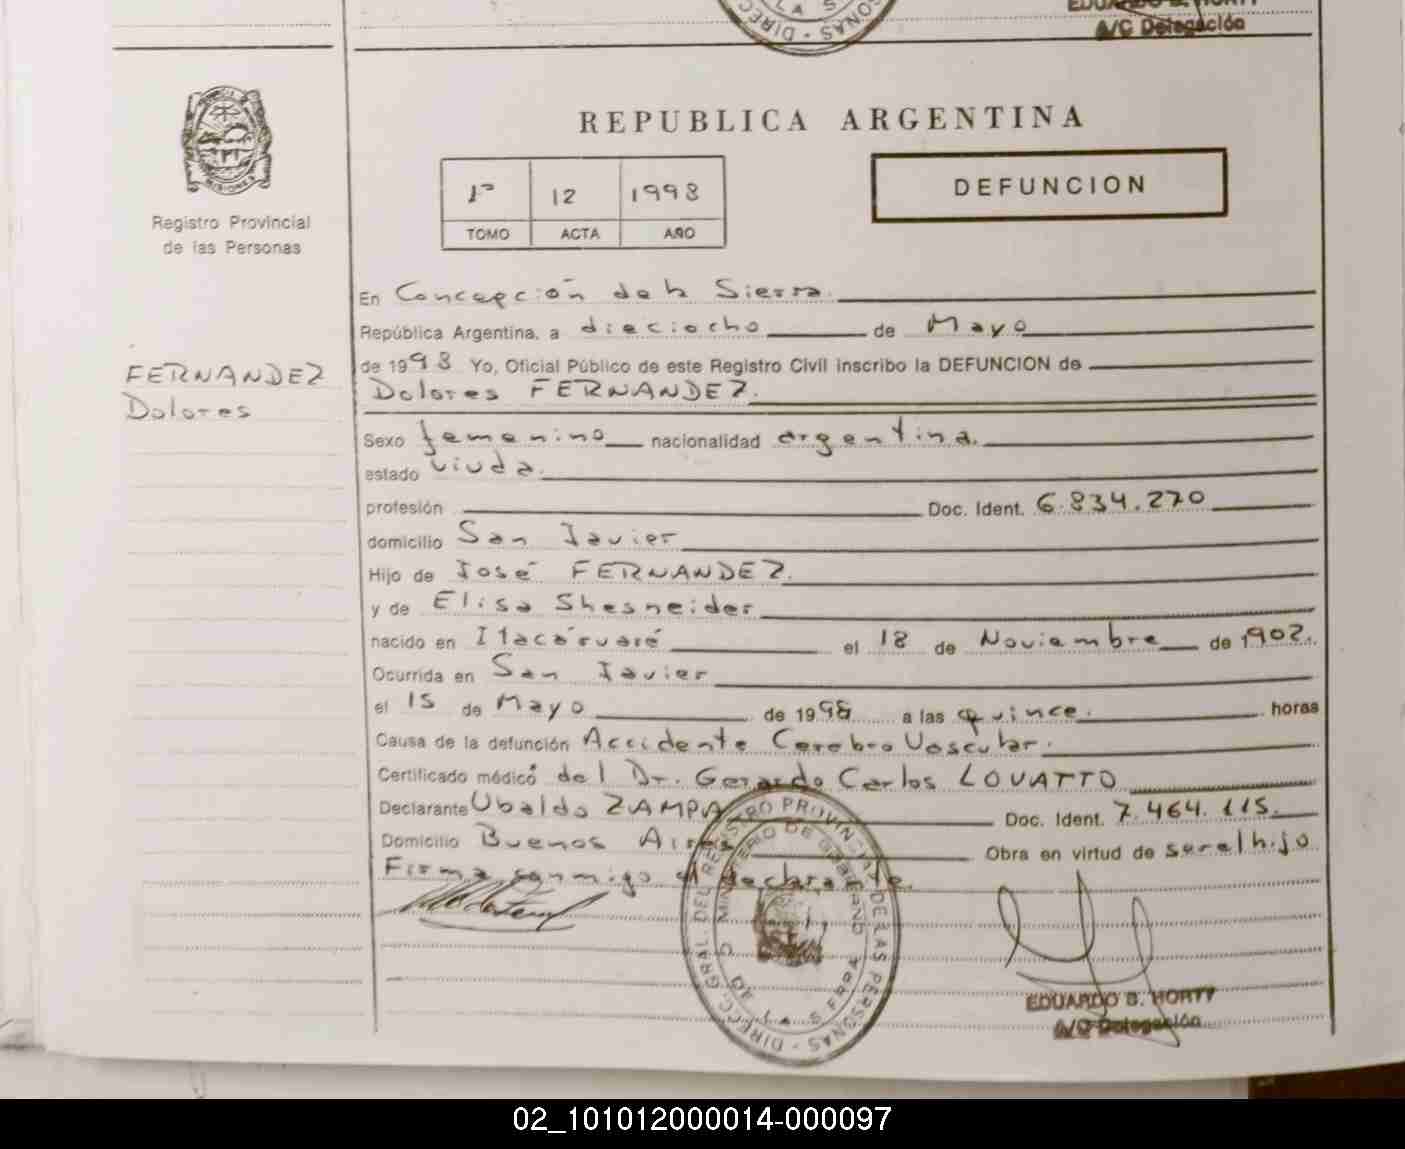 EDUARDO B. HORTY
A/C Delegación
REPUBLICA ARGENTINA
1º 12 1998
TOMO ACTA AÑO
DEFUNCION
MISIONES
Registro Provincial
de las Personas
FERNANDEZ
Dolores
En Concepción de la Sierra.
República Argentina, a dieciocho de Mayo
de 1998 Yo, Oficial Público de este Registro Civil inscribo la DEFUNCION de
Dolores FERNANDEZ.
Sexo femenino nacionalidad argentina.
estado viuda.
profesión Doc. Ident. 6.834.270
domicilio San Javier
Hijo de José FERNANDEZ.
y de Elisa Shesneider
nacido en Itacáruaré el 18 de Noviembre de 1902.
Ocurrida en San Javier
el 15 de Mayo de 1998 a las quince. horas
Causa de la defunción Accidente Cerebro Vascular.
Certificado médico del Dr. Gerardo Carlos LOVATTO
Declarante Ubaldo ZAMPA Doc. Ident. 7.464.115.
Domicilio Buenos Aires Obra en virtud de ser el hijo
Firma conmigo el declarante.
DIRECC. GRAL. DEL REGISTRO PROVINCIAL DE LAS PERSONAS
MINISTERIO DE GOBIERNO
EDUARDO B. HORTY
A/C Delegación
02_101012000014-000097